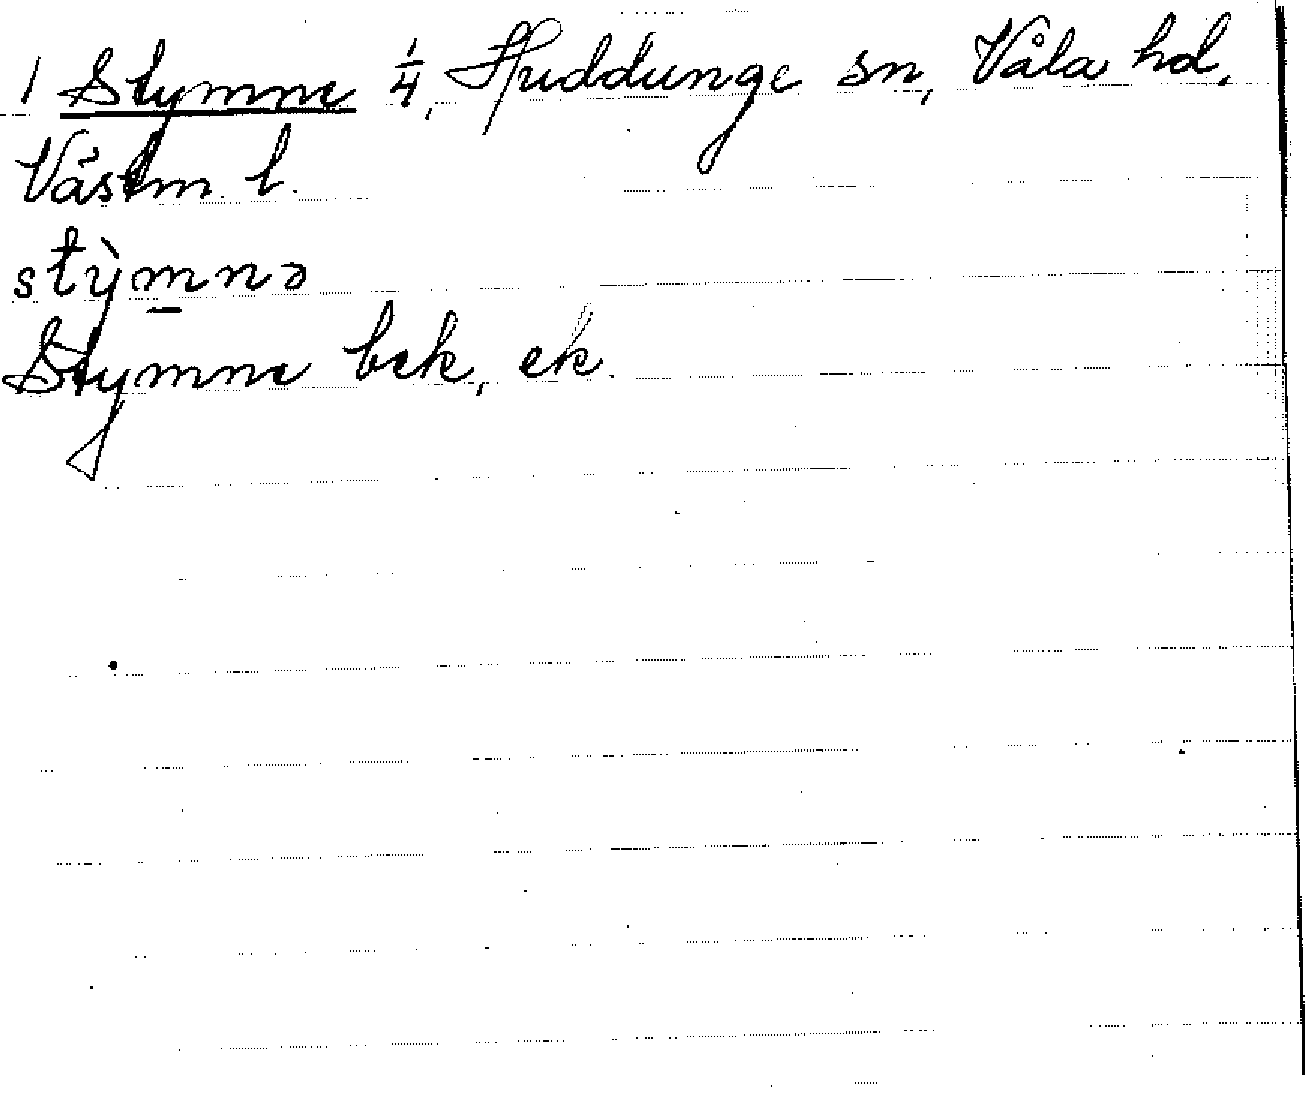 1 Stymne 1/4, Huddunge sn, Våla hd,
Västm. l.
stỳm̲nə
Stymne bek, ek.